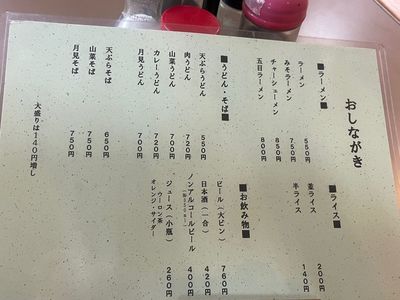 おしながき
■ラーメン■
ラーメン 550円
みそラーメン 750円
チャーシューメン 850円
五目ラーメン 800円
■うどん・そば■
天ぷらうどん 550円
肉うどん 720円
山菜うどん 700円
カレーうどん 720円
月見うどん 700円
天ぷらそば 650円
山菜そば 750円
月見そば 750円
大盛りは140円増し
■ライス■
並ライス 200円
半ライス 140円
■お飲み物■
ビール(大ビン) 760円
日本酒(一合) 420円
ノンアルコールビール 400円
ジュース(小瓶) 260円
ウーロン茶
オレンジ・サイダー